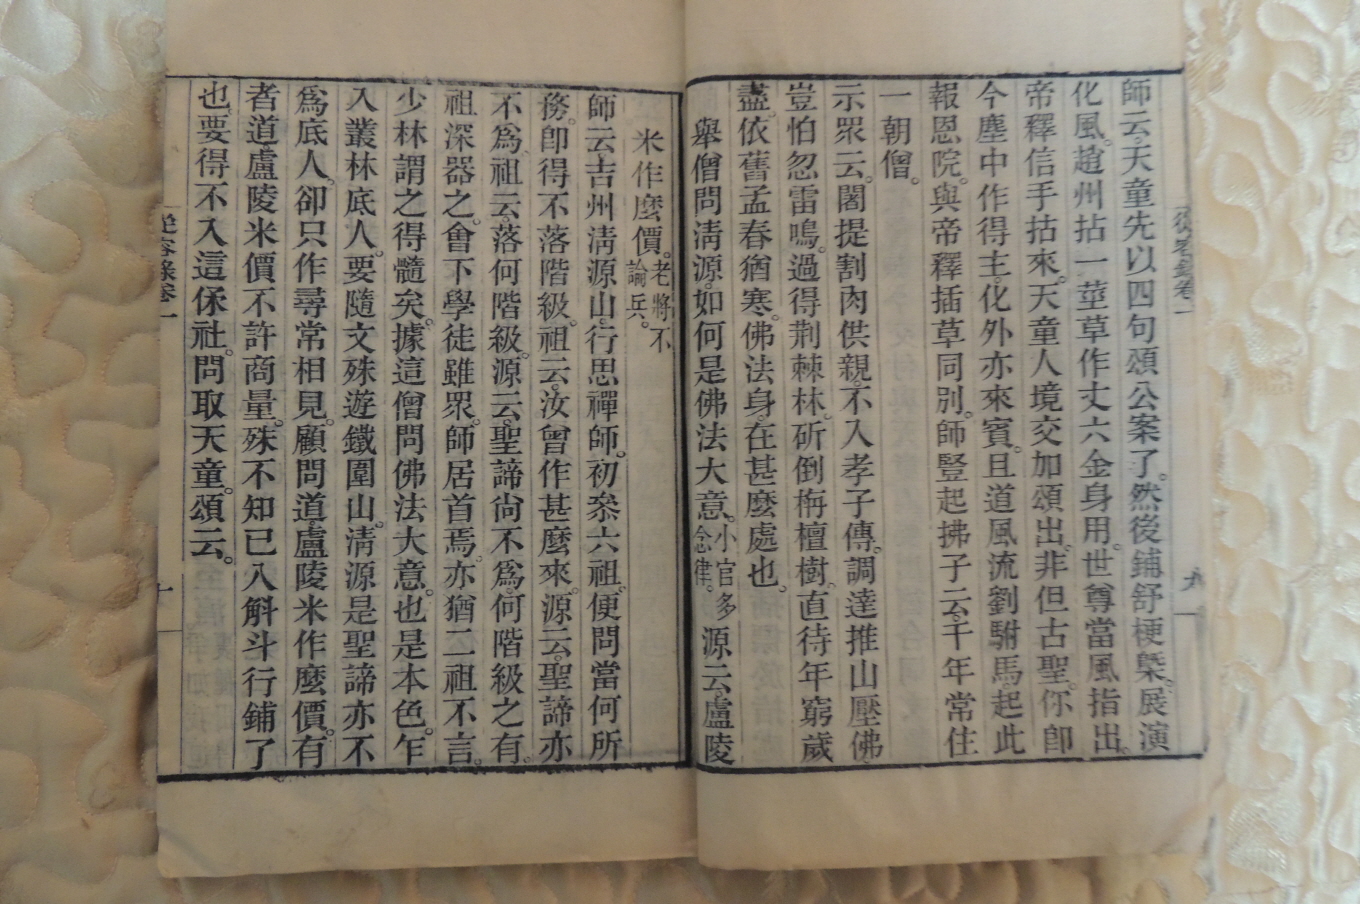 師云。天童先以四句頌公案了。然後鋪舒梗槩。展演
化風。趙州拈一莖草作丈六金身用。世尊當風指出。
帝釋信手拈來。天童人境交加頌出。非但古聖。你卽
今塵中作得主。化外亦來賓。且道風流劉駙馬起此
報恩院。與帝釋插草同別。師豎起拂子云。千年常住
一朝僧。
示眾云。闍提割肉供親。不入孝子傳。調達推山壓佛
豈怕忽雷鳴。過得荆棘林。斫倒栴檀樹。直待年窮歲
盡。依舊孟春猶寒。佛法身。在甚麼處也。
舉僧問淸源。如何是佛法大意。小官多念律。源云。盧陵
米作麼價。老將不論兵。
師云。吉州淸源山。行思禪師。初叅六祖。便問當何所
務。卽得不落階級。祖云。汝曾作甚麼來。源云。聖諦亦
不爲。祖云。落何階級。源云。聖諦尙不爲。何階級之有。
祖深器之。會下學徒雖眾。師居首焉。亦猶二祖不言。
少林謂之得髓矣。據這僧問佛法大意。也是本色。乍
入叢林底人。要隨文殊遊鐵圍山。淸源是聖諦亦不
爲底人。卻只作尋常相見。顧問道。盧陵米作麼價。有
者道盧陵米價不許商量。殊不知已入斛斗行鋪了
也。要得不入這保社。問取天童。頌云。
從容錄卷一
九
從容錄卷一
十